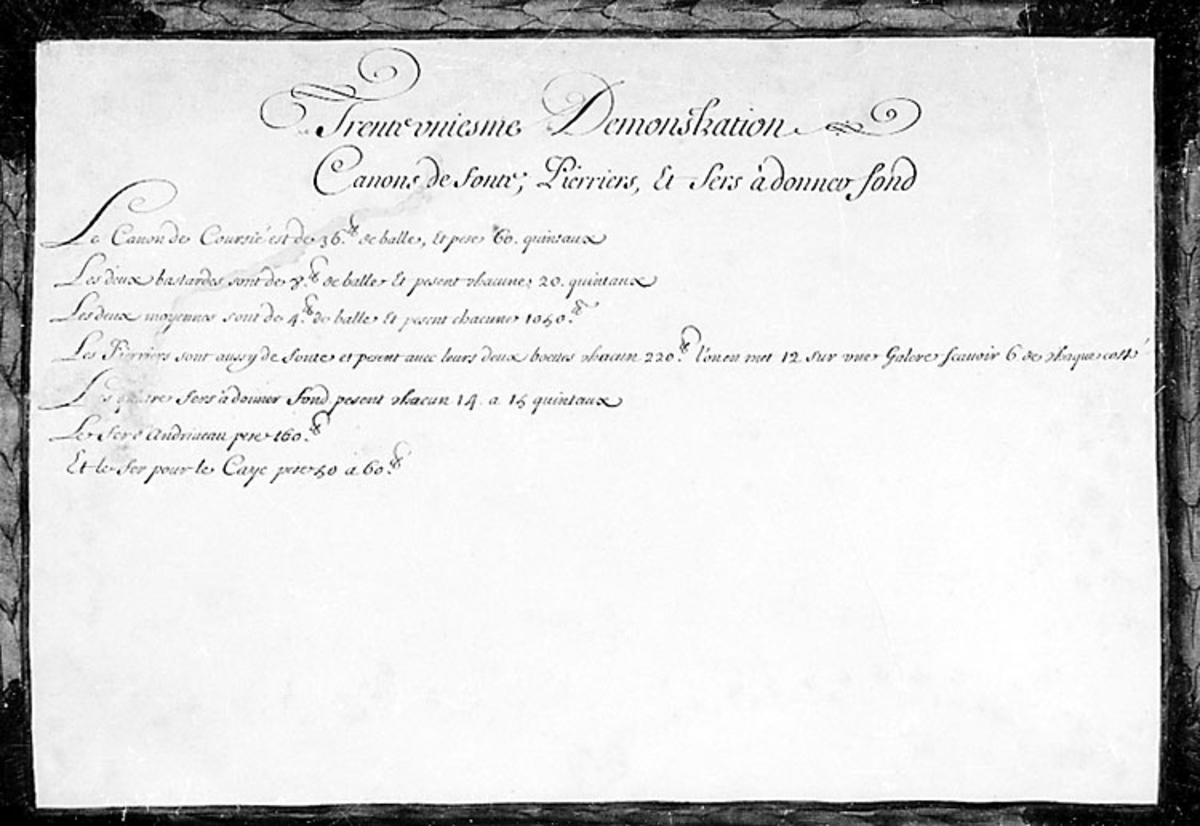 Trente vniesme Demonstration
Canons de fonte, Pierriers, Et fers à donner fond
Le Canon de Coursié est de 36.lb de balle, Et pese 60. quintaux
Les deux bastardes sont de 8.lb de balle Et pesent chacune, 20. quintaux
Les deux moyennes sont de 4.lb de balle Et pesent chacune 1050.lb
Les Pierriers sont aussy de fonte et pesent auec leurs deux boetes chacun 220.lb l'on en met 12 sur vne Galere scauoir 6 de chaque costé
Les quatre fers à donner fond pesent chacun 14. a 15 quintaux
Le fer d'Andriueau pese 160.lb
Et le fer pour le Caye pese 50 a 60.lb